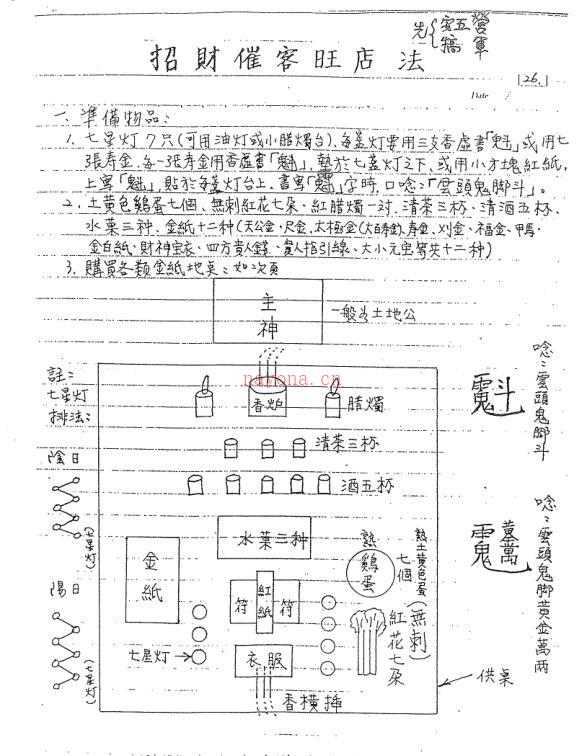 先{安五營
犒軍
招財催客旺店法
26.
Date
一、準備物品:
1. 七星灯7只(可用油灯或小腊燭台)、每盞灯要用三支香虛書「魁」或用七
張寿金、每一張寿金用香虛書「魁」、墊於七盞灯之下、或用小方塊紅紙,
上寫「魁」、貼於每盞灯台上、書寫「魁」字時,口唸:「雲頭鬼脚斗」。
2. 土黄色鷄蛋七個、無刺紅花七朵、紅腊燭一对、清茶三杯、清酒五杯、
水菓三种、金紙十二种(天公金、尺金、太極金(大百寿金)、寿金、刈金、福金、甲馬、
金白紙、財神宝衣、四方貴人錢、貴人指引線、大小元宝等共十二种)
3. 購買各類金紙地桌:如次頁
主
神
一般為土地公
nayona.cn
註:
七星灯
排法:
香炉
腊燭
清茶三杯
陰日
酒五杯
(七星灯)
水菓三种
熟
鷄
蛋
七個
熟土黄色蛋
金
紙
符
紅紙
符
(無刺)
紅花七朵
陽日
七星灯→
衣服
(七星灯)
香橫挿
供桌
斗
唸:雲頭鬼脚斗
唸:雲頭鬼脚黄金萬兩